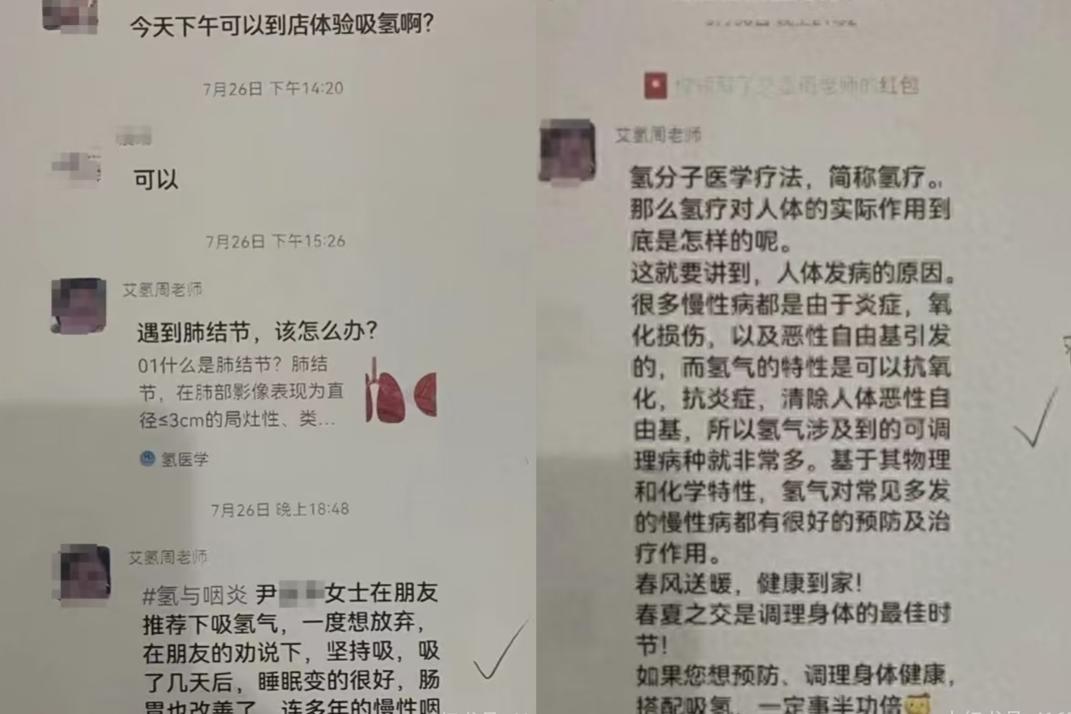 今天下午可以到店体验吸氢啊?
7月26日 下午14:20
可以
7月26日 下午15:26
艾氢周老师
遇到肺结节，该怎么办?
01什么是肺结节？肺结
节，在肺部影像表现为直
径≤3cm的局灶性、类...
氢医学
7月26日 晚上18:48
艾氢周老师
#氢与咽炎 尹
女士在朋友
推荐下吸氢气，一度想放弃，
在朋友的劝说下，坚持吸，吸
了几天后，睡眠变的很好，肠
胃也改善了，连多年的慢性咽
红包
艾氢周老师
氢分子医学疗法，简称氢疗。
那么氢疗对人体的实际作用到
底是怎样的呢。
这就要讲到，人体发病的原因。
很多慢性病都是由于炎症，氧
化损伤，以及恶性自由基引发
的，而氢气的特性是可以抗氧
化，抗炎症，清除人体恶性自
由基，所以氢气涉及到的可调
理病种就非常多。基于其物理
和化学特性，氢气对常见多发
的慢性病都有很好的预防及治
疗作用。
春风送暖，健康到家！
春夏之交是调理身体的最佳时
节！
如果您想预防、调理身体健康，
搭配吸氢，一定事半功倍